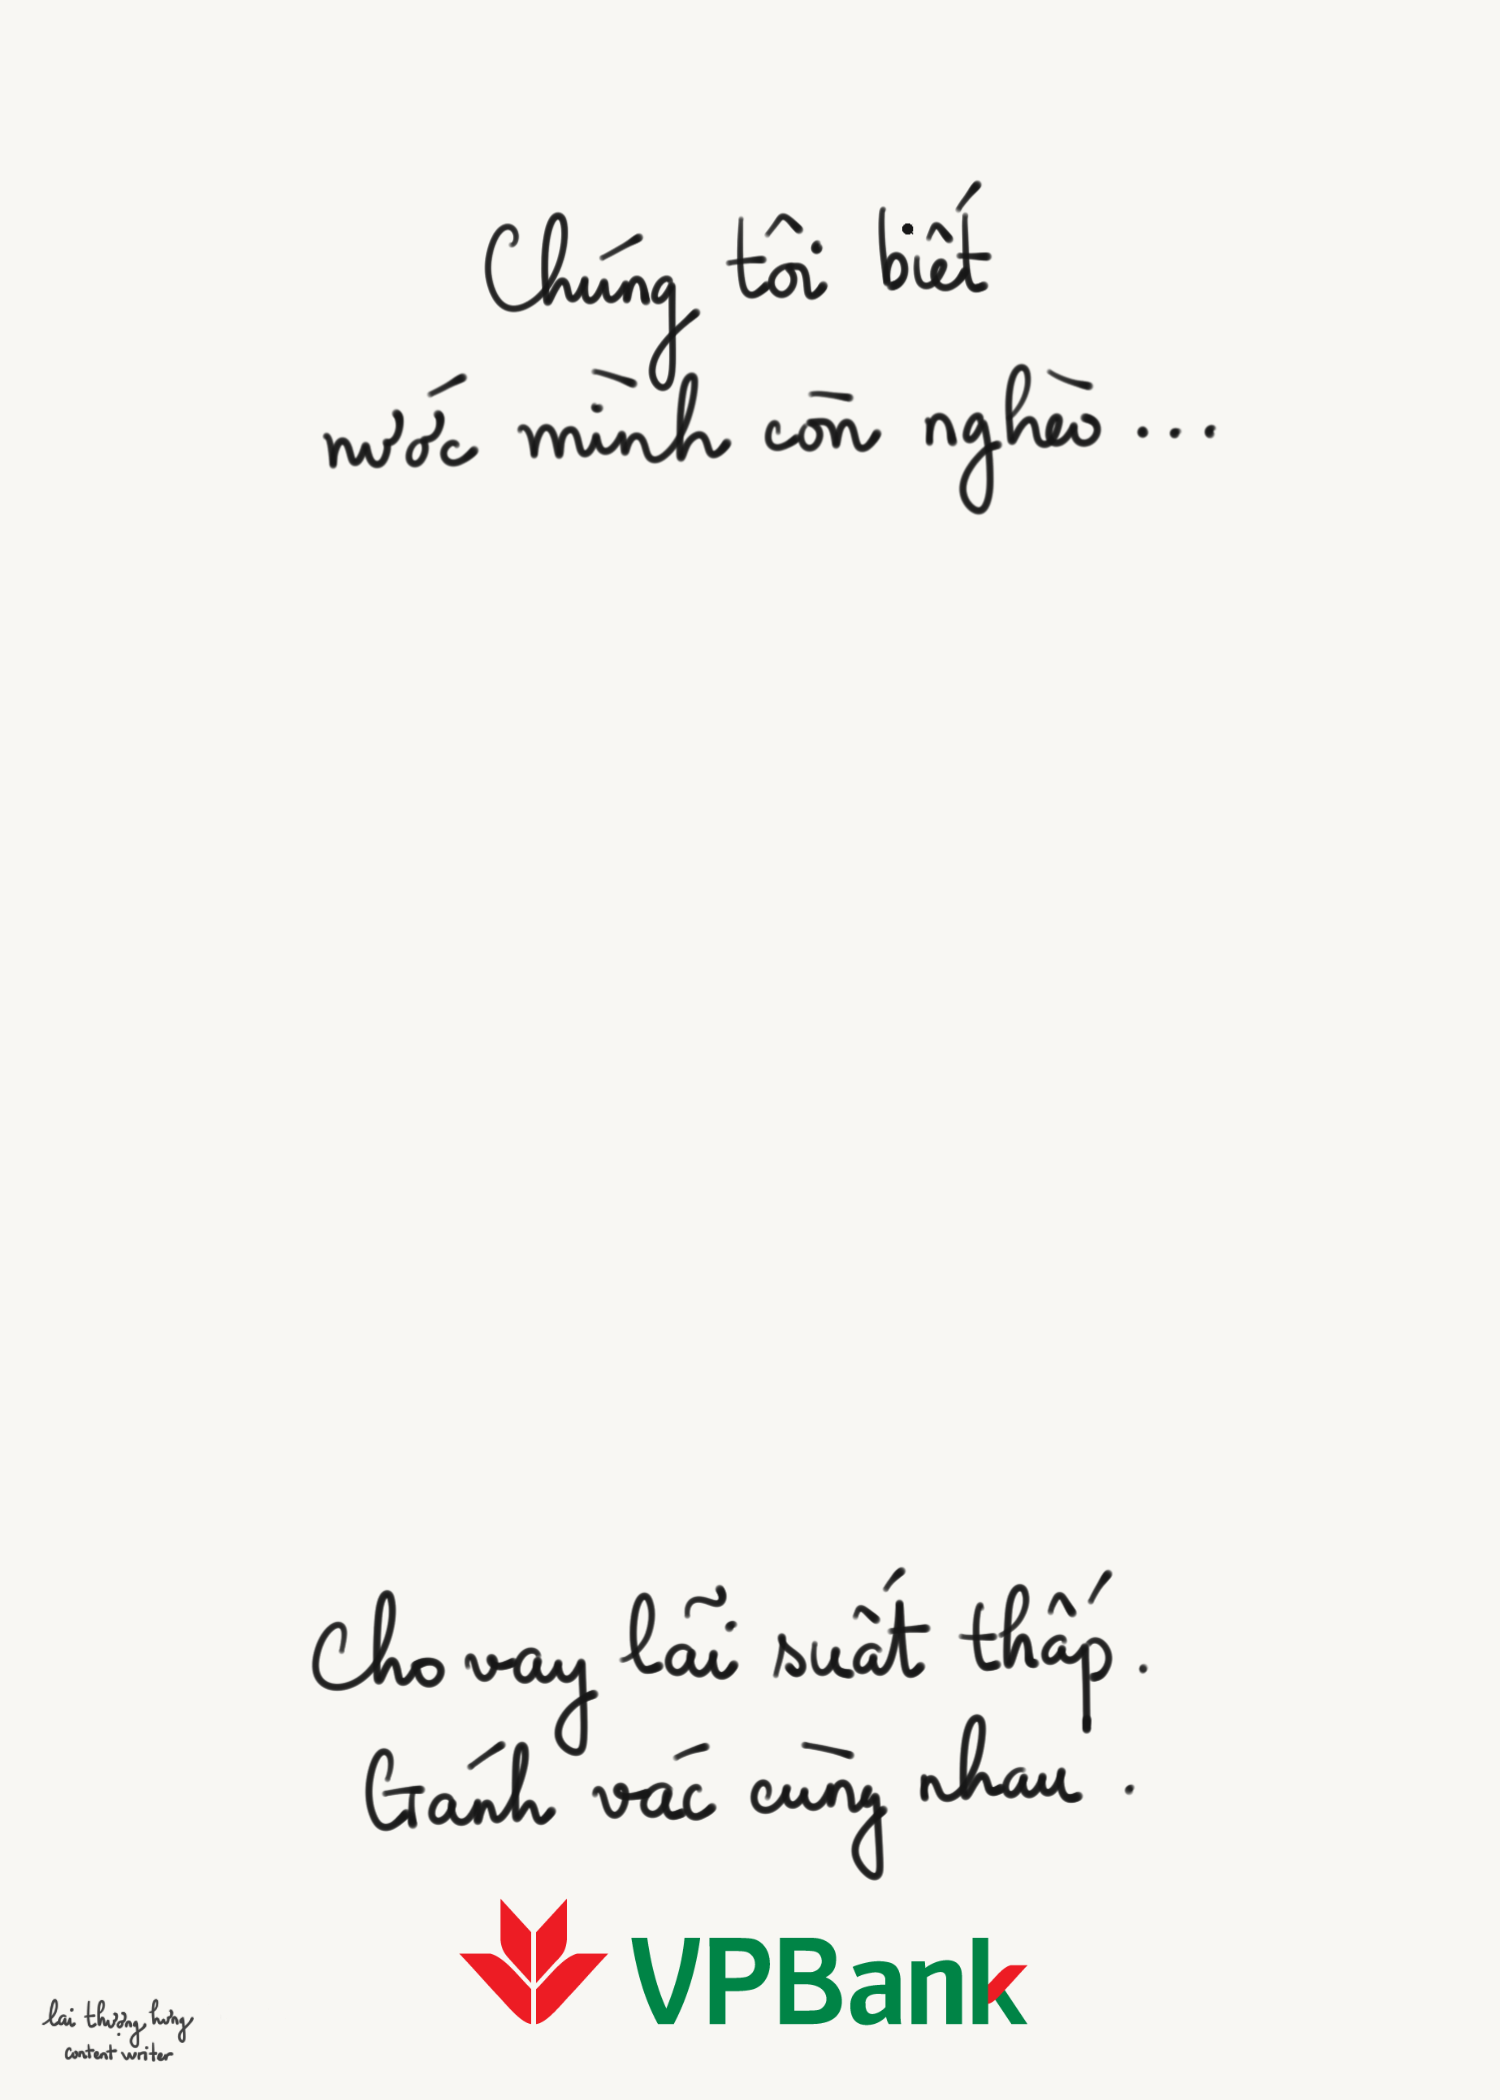 Chúng tôi biết
nước mình còn nghèo...
Cho vay lãi suất thấp.
Gánh vác cùng nhau.
VPBank
lai thượng hưng
content writer